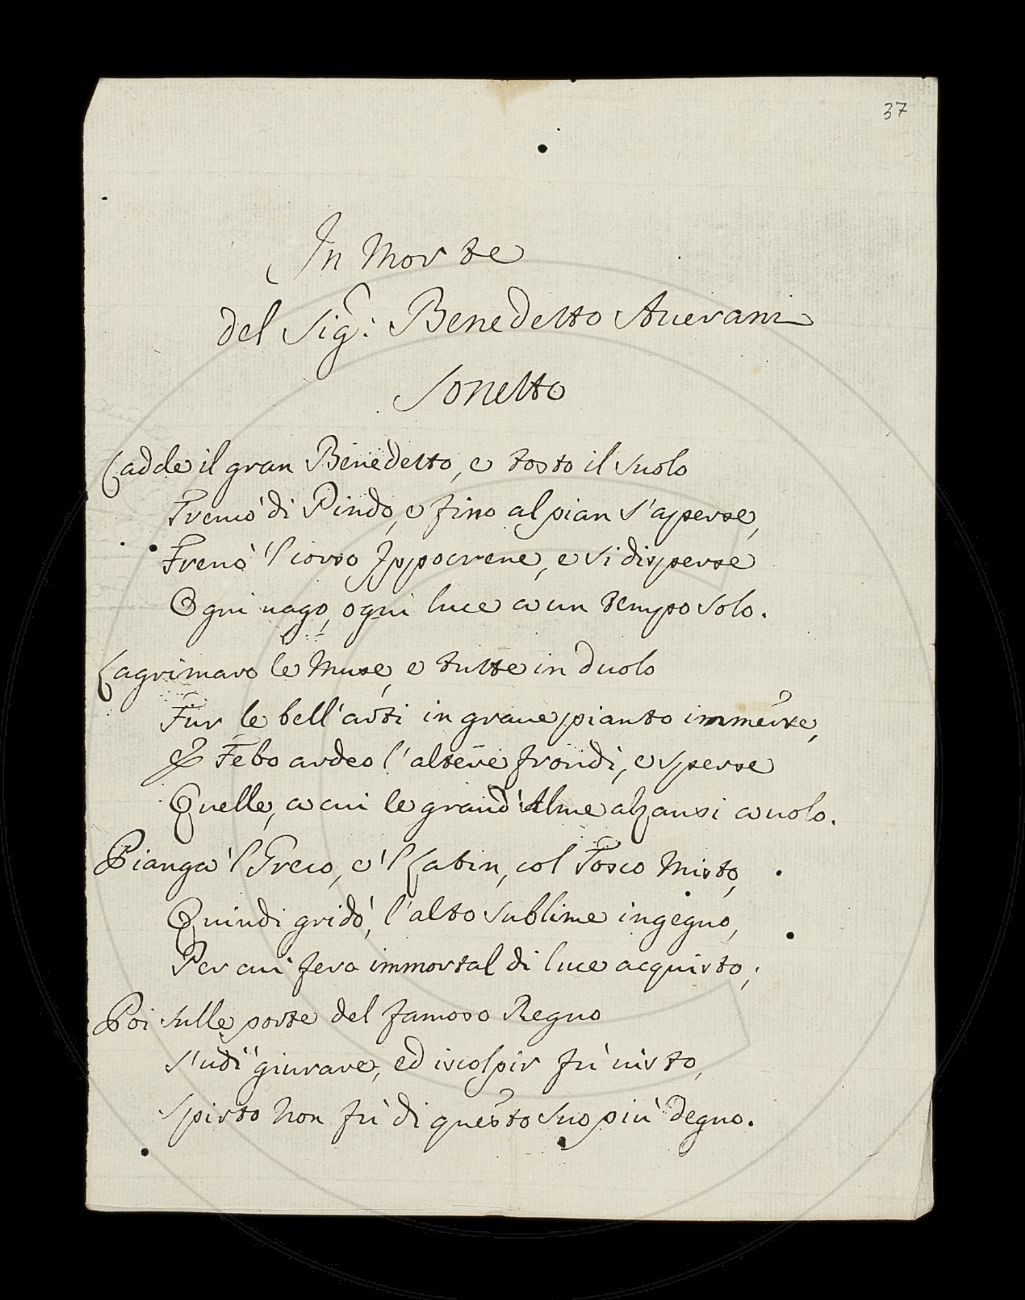 37
In Morte
del Sig: Benedetto Auerani
Sonetto
Cadde il gran Benedetto, e tosto il suolo
Tremò di Pindo, e fino al pian s'aperse,
Frenò 'l corso Ippocrene, e si disperse
Ogni uago, ogni luce a un tempo solo.
Lagrimaro le Muse, e tutte in duolo
Fur le bell'arti in graue pianto immerse,
E Febo ardeo l'altere frondi, e sperse
Quelle, a cui le grand'Alme alzansi a uolo.
Pianga 'l Greco, e 'l Latin, col Tosco Misto,
Quindi gridò, l'alto sublime ingegno,
Per cui fera immortal di luce acquisto;
Poi sulle porte del famoso Regno
S'udì giurare, ed iscolpir fù uisto,
Spirto non fù di questo suo più degno.